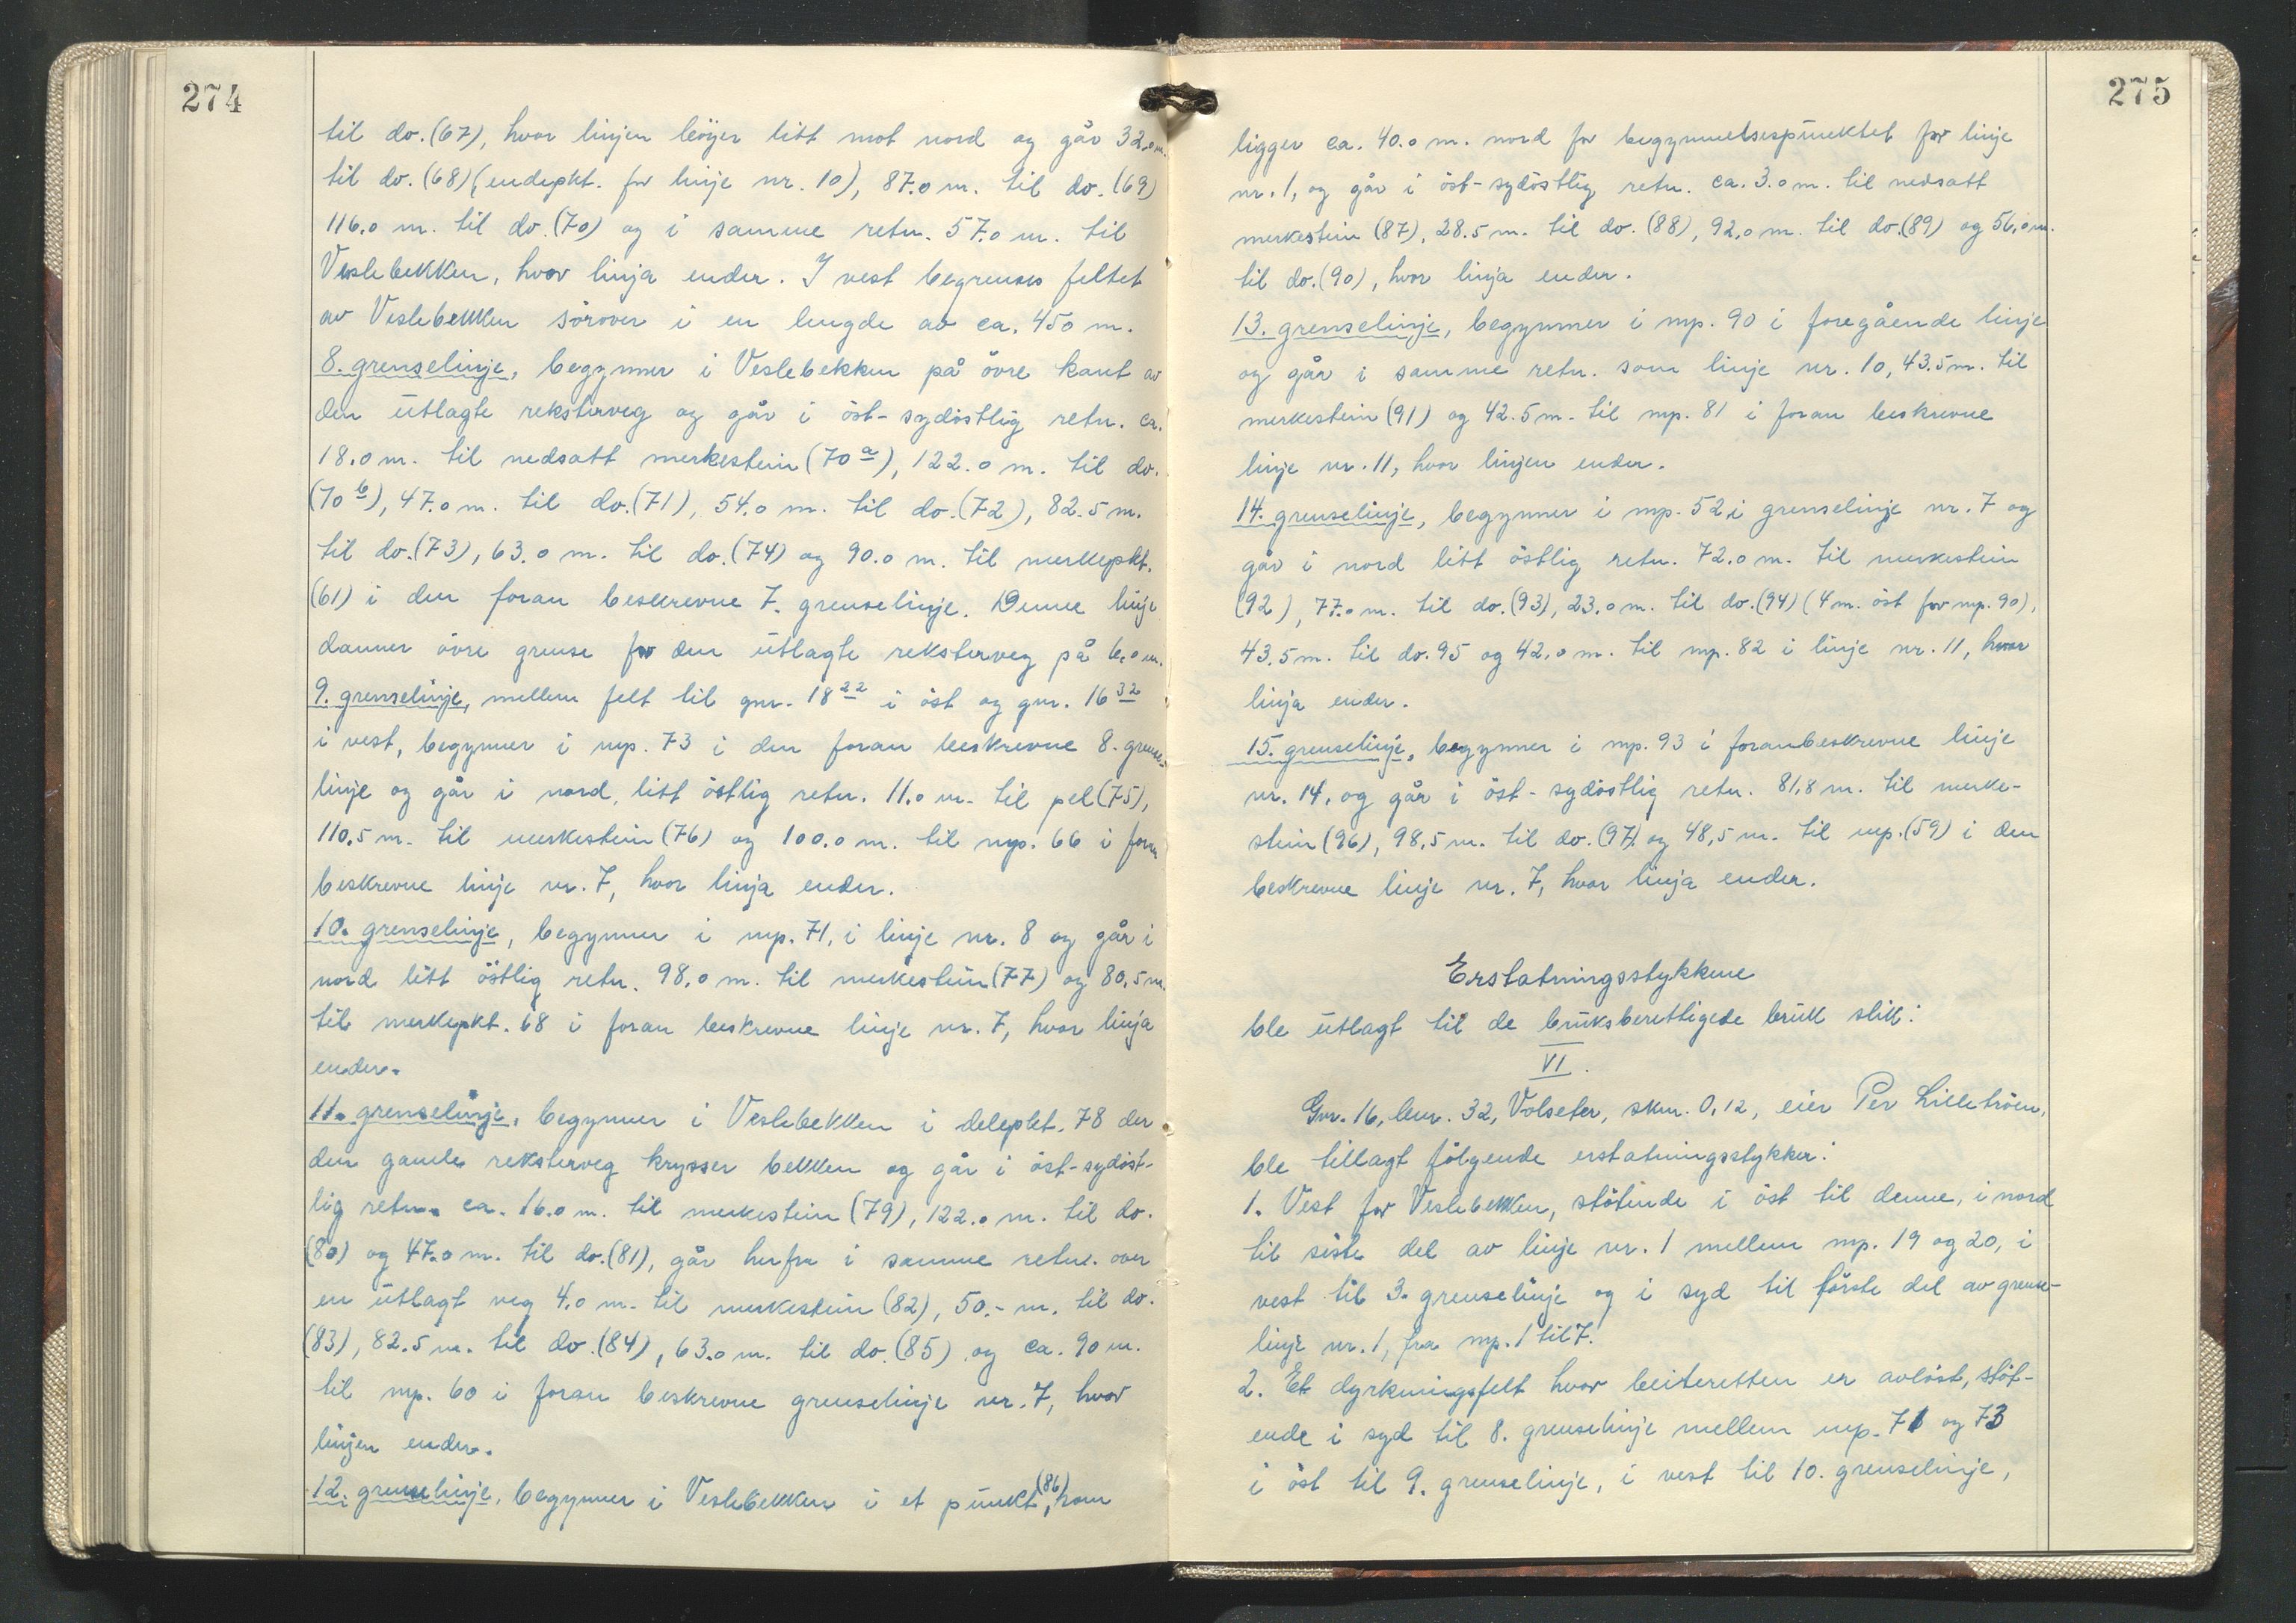 274
til do. (67), hvor linjen böyer litt mot nord og går 32.0 m.
til do. (68) (endepkt. for linje nr. 10), 87.0 m. til do. (69)
116.0 m. til do. (70) og i samme retn. 57.0 m. til
Veslebekken, hvor linja ender. I vest begrenses feltet
av Veslebekken sörover i en lengde av ca. 450 m.
8. grenselinje, begynner i Veslebekken på övre kant av
den utlagte reksterveg og går i öst-sydöstlig retn. ca.
18.0 m. til nedsatt merkestein (70 a), 122.0 m. til do.
(70 b), 47.0 m. til do. (71), 54.0 m. til do. (72), 82.5 m.
til do. (73), 63.0 m. til do. (74) og 90.0 m. til merkepkt.
(61) i den foran beskrevne 7. grenselinje. Denne linje
danner övre grense for den utlagte reksterveg på 6.0 m.
9. grenselinje, mellem felt til gnr. 18 22 i öst og gnr. 16 32
i vest, begynner i mp. 73 i den foran beskrevne 8. grense-
linje og går i nord, litt östlig retn. 11.0 m. til pel (75),
110.5 m. til merkestein (76) og 100.0 m. til mp. 66 i foran
beskrevne linje nr. 7, hvor linja ender.
10. grenselinje, begynner i mp. 71, i linje nr. 8 og går i
nord litt östlig retn. 98.0 m. til merkestein (77) og 80,5 m.
til merkepkt. 68 i foran beskrevne linje nr. 7, hvor linja
ender.
11. grenselinje, begynner i Veslebekken i delepkt. 78 der
den gamle reksterveg krysser bekken og går i öst-sydöst-
lig retn. ca. 16.0 m. til merkestein (79), 122.0 m. til do.
(80) og 47.0 m. til do. (81), går herfra i samme retn. over
en utlagt veg 4.0 m. til merkestein (82), 50.- m. til do.
(83), 82.5 m. til do. (84), 63.0 m. til do. (85) og ca. 90 m.
til mp. 60 i foran beskrevne grenselinje nr. 7, hvor
linjen ender.
12. grenselinje, begynner i Veslebekken i et punkt (86), som
275
ligger ca. 40.0 m. nord for begynnelsespunktet for linje
nr. 1, og går i öst-sydöstlig retn. ca. 3.0 m. til nedsatt
merkestein (87), 28.5 m. til do. (88), 92,0 m. til do. (89) og 56,0 m.
til do. (90), hvor linja ender.
13. grenselinje, begynner i mp. 90 i foregående linje
og går i samme retn. som linje nr. 10, 43.5 m. til
merkestein (91) og 42.5 m. til mp. 81 i foran beskrevne
linje nr. 11, hvor linjen ender.
14. grenselinje, begynner i mp. 52 i grenselinje nr. 7 og
går i nord litt östlig retn. 72.0 m. til merkestein
(92), 77.0 m. til do. (93), 23.0 m. til do. (94) (4 m. öst for mp. 90),
43.5 m. til do. 95 og 42,0 m. til mp. 82 i linje nr. 11, hvor
linja ender.
15. grenselinje, begynner i mp. 93 i foranbeskrevne linje
nr. 14, og går i öst-sydöstlig retn. 81,8 m. til merke-
stein (96), 98,5 m. til do. (97) og 48,5 m. til mp. (59) i den
beskrevne linje nr. 7, hvor linja ender.
Erstatningsstykkene
ble utlagt til de bruksberettigede bruk slik:
VI.
Gnr. 16, bnr. 32, Volseter, skm. 0,12, eier Per Lilleströen,
ble tillagt fölgende erstatningsstykker:
1. Vest for Veslebekken, stötende i öst til denne, i nord
til siste del av linje nr. 1 mellem mp. 19 og 20, i
vest til 3. grenselinje og i syd til förste del av grense-
linje nr. 1, fra mp. 1 til 7.
2. Et dyrkningsfelt hvor beiteretten er avlöst, stöt-
ende i syd til 8. grenselinje mellem mp. 71 og 73
i öst til 9. grenselinje, i vest til 10. grenselinje,